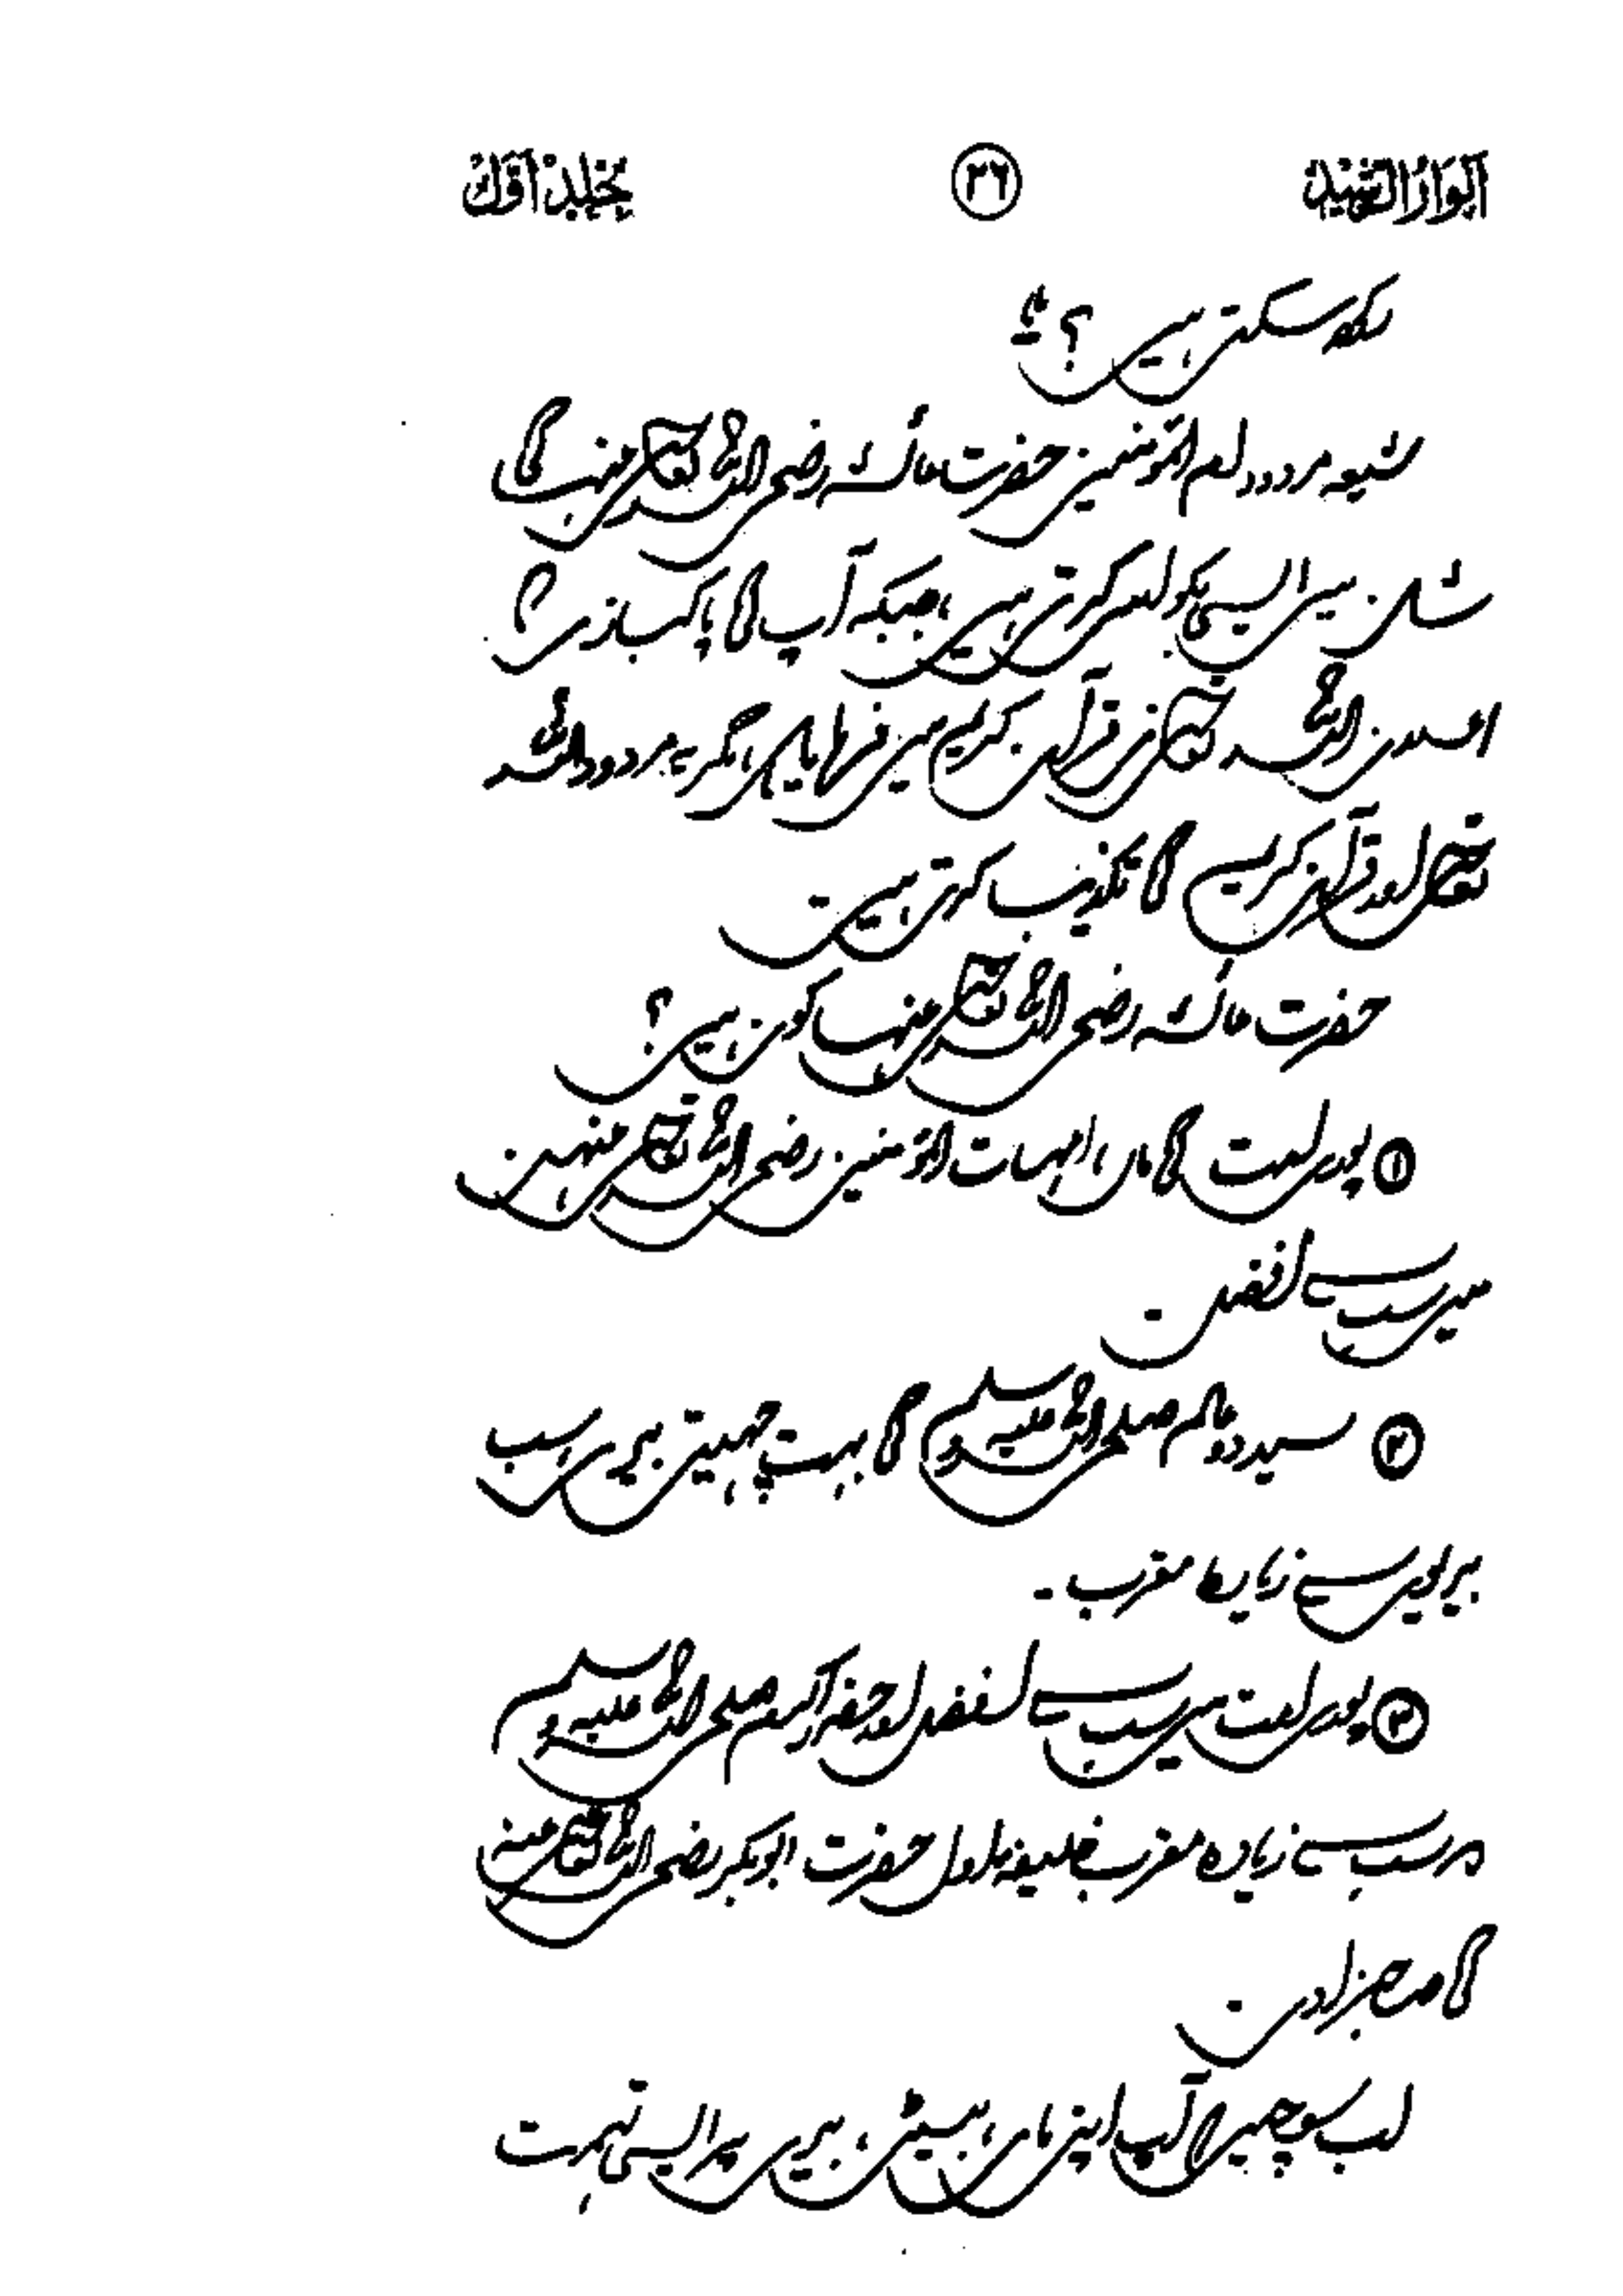 انوار الرشید ۳۶ جلد اول
رکھ سکتے ہیں؟
شیعہ مردود ام المؤمنین حضرت عائشہ رضی اللہ تعالیٰ عنہا کی
شان میں ایسی بکواس کرتے ہیں، جبکہ آپ کی پاکبازی کا
اعلان اللہ تعالیٰ نے قرآن کریم میں فرمایا ہے، مگر یہ مردود اللہ
تعالیٰ اور قرآن کریم کی تکذیب کرتے ہیں۔
حضرت عائشہ رضی اللہ تعالیٰ عنہا کون ہیں؟
① پوری امت کی ماں، امہات المؤمنین رضی اللہ تعالیٰ عنہن
میں سب سے افضل۔
② سید دو عالم صلی اللہ علیہ وسلم کی بہت چہیتی بیوی، سب
بیویوں سے زیادہ مقرب۔
③ پوری امت میں سب سے افضل اور حضور اکرم صلی اللہ علیہ وسلم
کے سب سے زیادہ مقرب خلیفہ اول حضرت ابوبکر رضی اللہ تعالیٰ عنہ
کی صاحبزادی۔
اب سوچیں کہ آپ اپنی ماں، بیٹی، بیوی پر ایسی تہمت